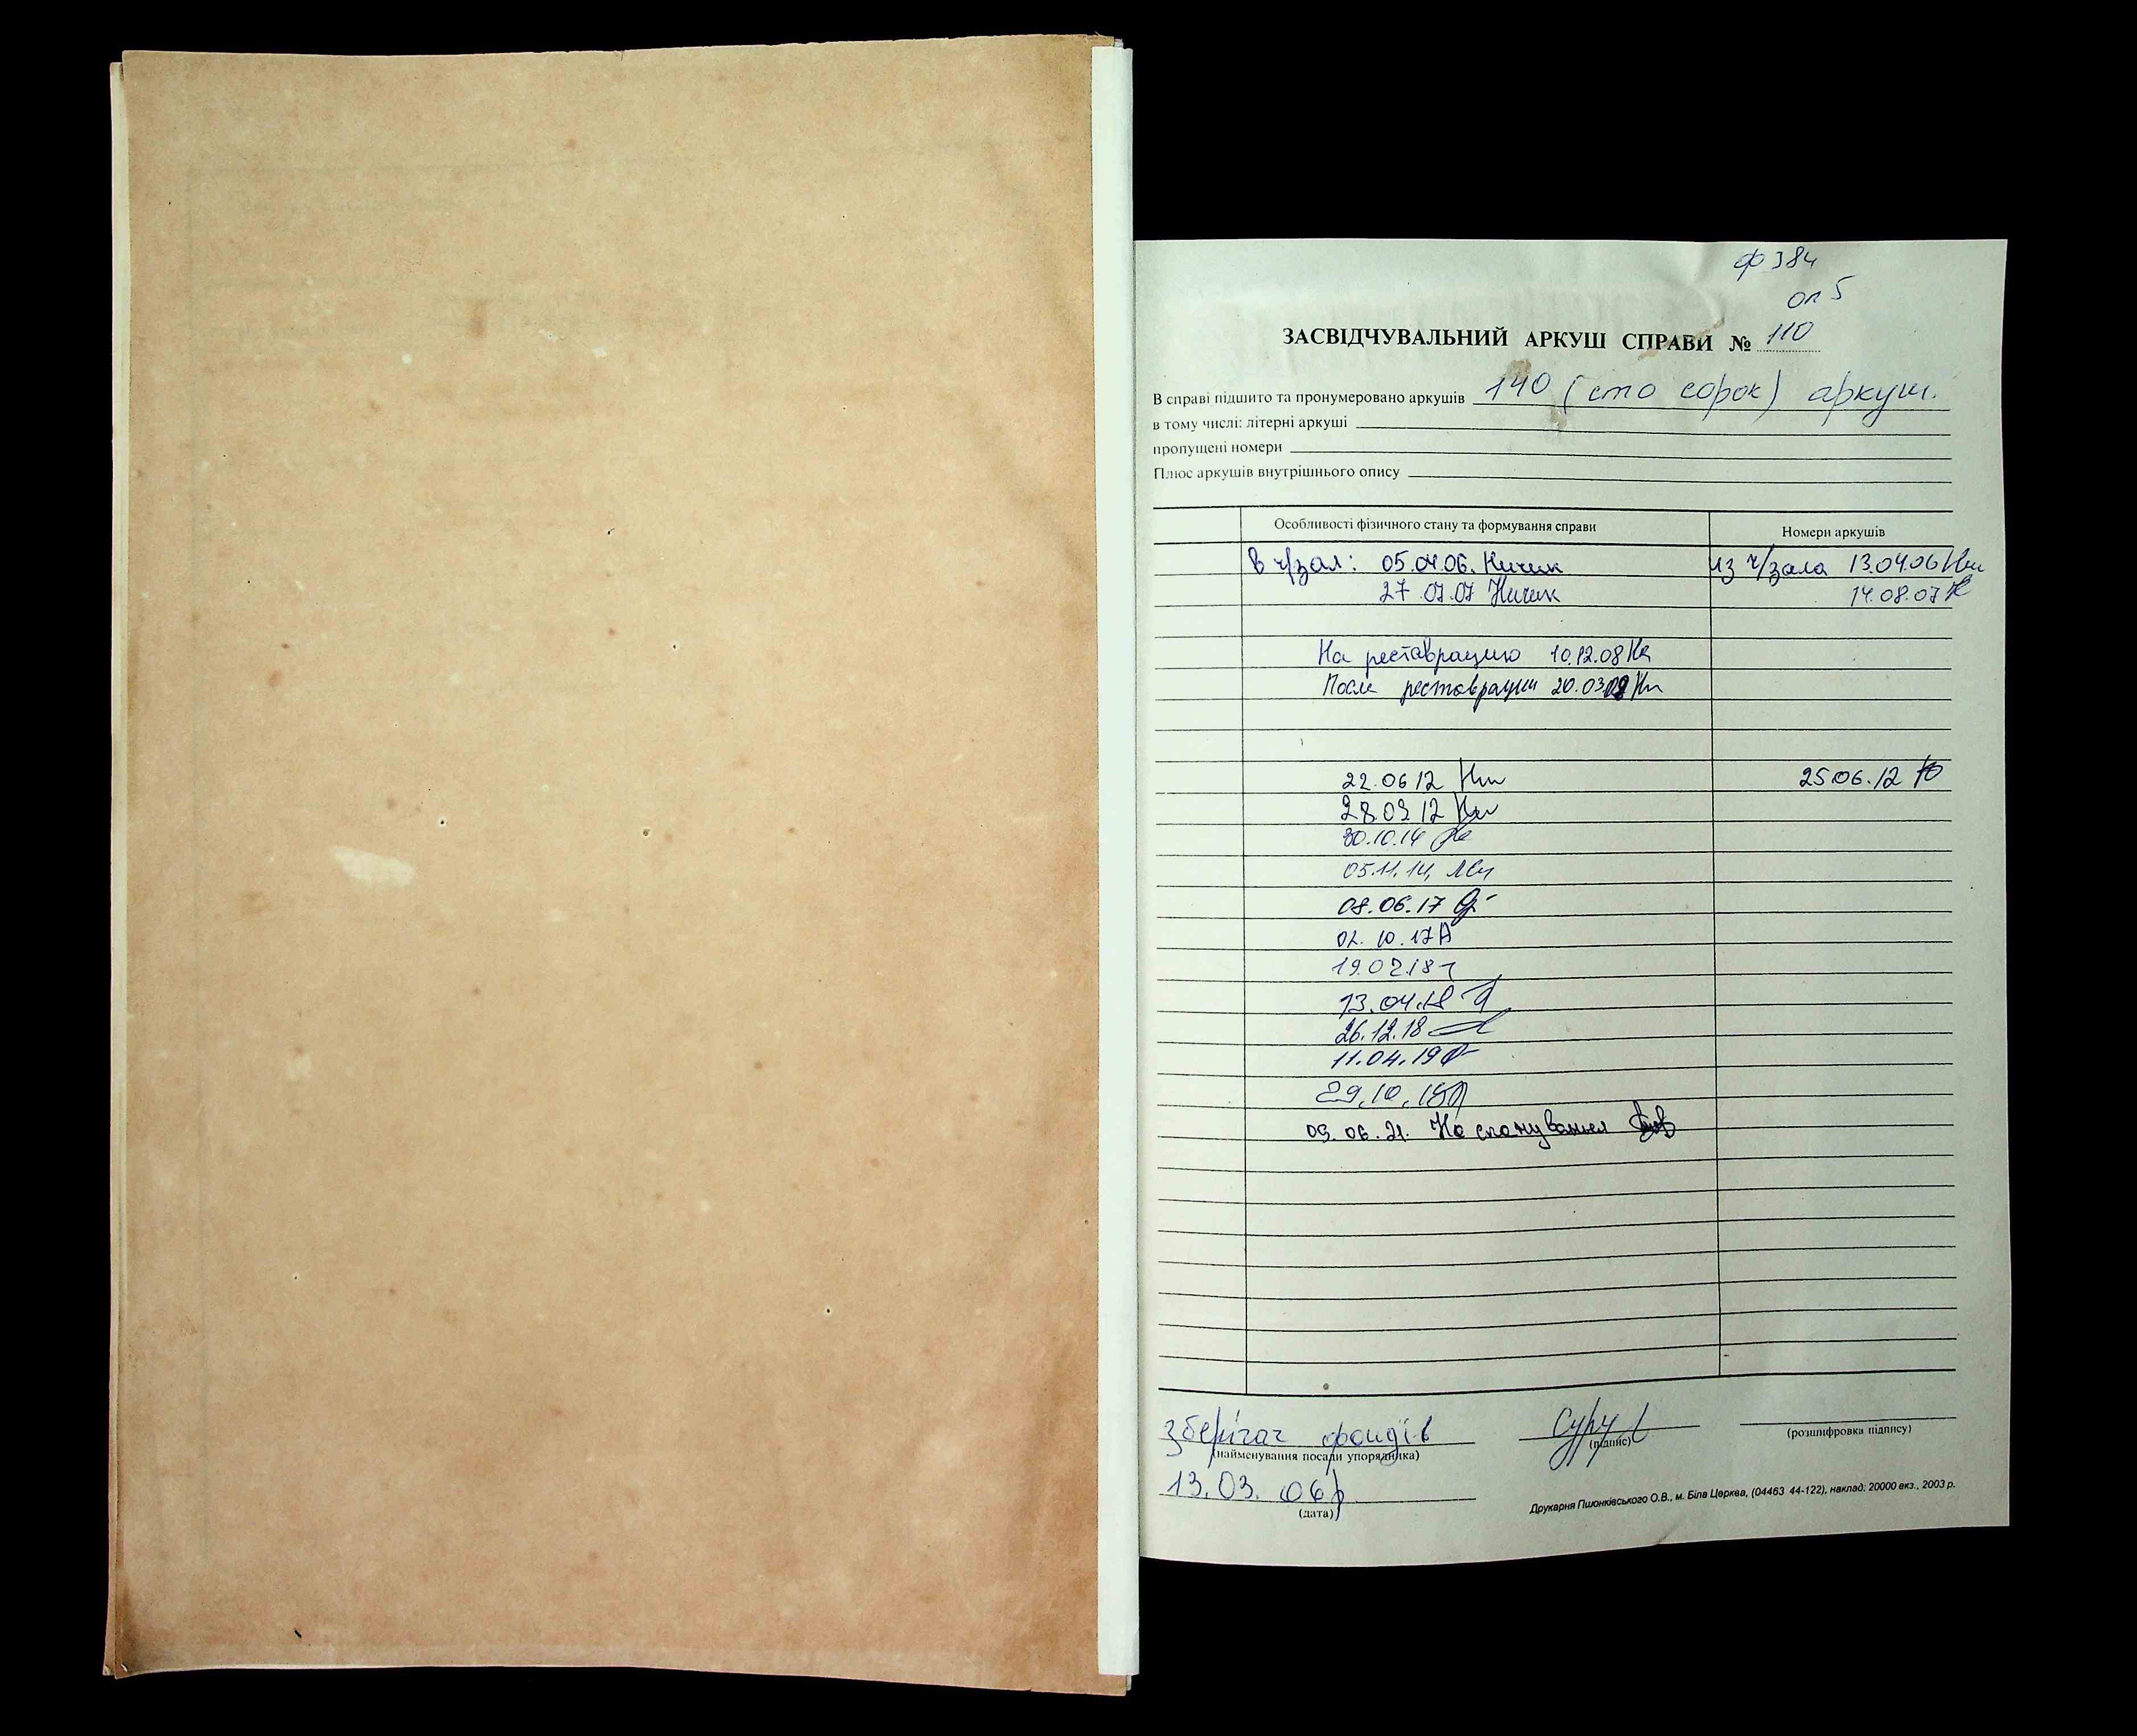 ф 384
оп 5
ЗАСВІДЧУВАЛЬНИЙ АРКУШ СПРАВИ № 110
В справі підшито та пронумеровано аркушів 140 (сто сорок) аркуш.
в тому числі: літерні аркуші
пропущені номери
Плюс аркушів внутрішнього опису
Особливості фізичного стану та формування справи Номери аркушів
В ч/зал: 05.04.06. Кичик из ч/зала 13.04.06
27.07.07 Кичик 14.08.07
На реставрацию 10.12.08
После реставрации 20.03.09
22.06 12 25.06.12
28.09 12
30.10.14
05.11.14
08.06.17
02.10.17
19.02.18
13.04.18
26.12.18
11.04.19
29.10.19
09.06.21. На сканування
зберігач фондів
(найменування посади упорядника) (підпис) (розшифровка підпису)
13.03.06р
(дата)
Друкарня Пшонківського О.В., м. Біла Церква, (04463 44-122), наклад: 20000 екз., 2003 р.